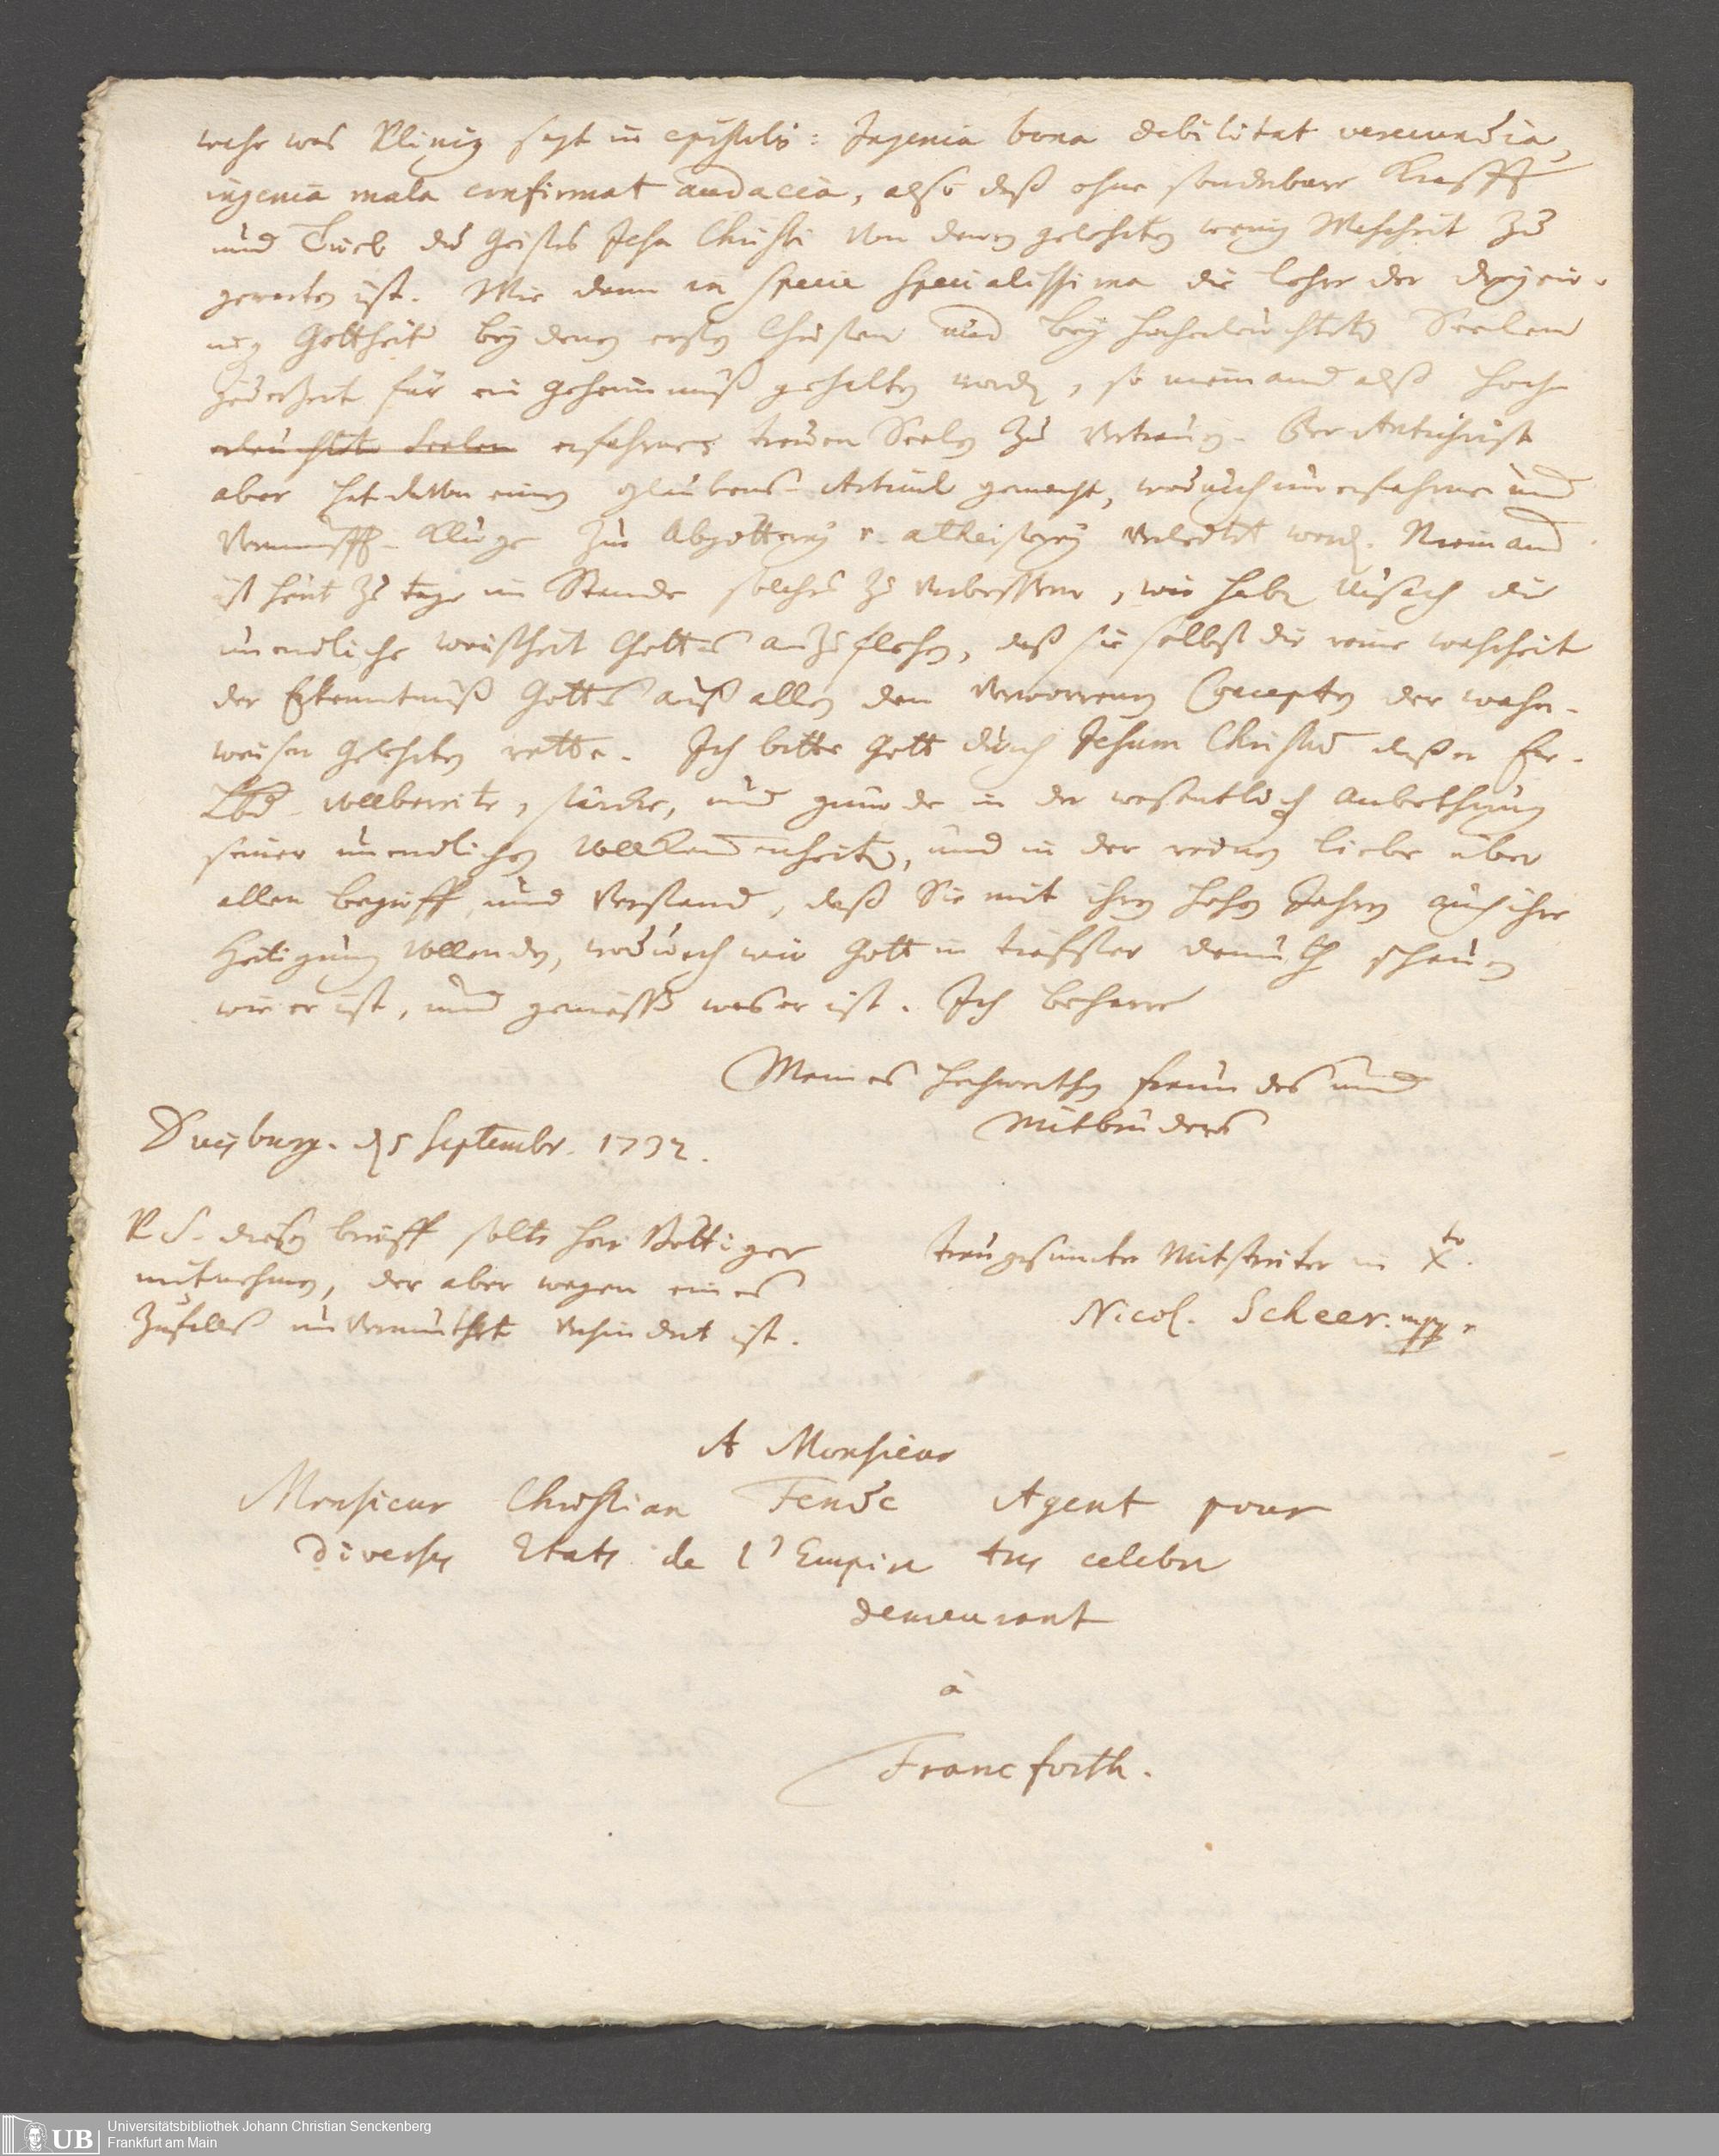 wahr was Plinig sagt in epistolis: Ingenia bona debilitat verecundia,
ingenia mala confirmat audacia, also daß ohne sonderbare Krafft
und Trieb des Geistes Jesu Christi von denen gelehrten wenig Wahrheit zu
gewarten ist. Wie dann in specie specialissima die lehre der dreyein-
nig Gottheit bey denen ersten Christen und bey hocherleuchteten Seelen
jederzeit für ein geheimnuß gehalten word, so niemand alß hoch
erleuchtete Seelen erfahrnen treuen Seelen zu vertrauen. Der Antichrist
aber hat davon einen glaubens-Articul gemacht, wodurch unerfahrne und
Vernunfft-Kluge zur Abgötterey u. atheisterey verleitet werd. Niemand
ist heut zu tage im Stande solches zu verbessern, wir haben Ursach die
unendliche weißheit Gottes anzuflehen, daß sie selbst die reine wahrheit
der Erkenntnuß Gottes auß allen den verworrenen Concepten der wahn-
weisen gelehrten rette. Ich bitte Gott durch Jesum Christum daß er Ew.
Lbd. vollbereite, stärcke, und gründe in der wesentlich anbethung
seiner unendlichen Vollkommenheiten, und in der reinen liebe über
allen begriff und Verstand, daß Sie mit ihren hohen Jahren auch ihre
Heiligung vollenden, wodurch wir Gott in tieffster demuth schauen
wie er ist, und geniessen was er ist. Ich beharre
Meines hochwerthen freundes und
Mitbruders
Duysburg. d 5 Septembr. 1732.
P S. diesen brieff solte Herr Böttiger
mitnehmen, der aber wegen eines
Zufalls unvermuthet verhindert ist.
treugesinnter Mitstreiter in Xto.
Nicol. Scheer. mpp.
A Monsieur
Monsieur Christian Fende Agent pour
diverses Etats de l'Empire tres celebre
demeurant
à
Francforth.
UB
Universitätsbibliothek Johann Christian Senckenberg
Frankfurt am Main